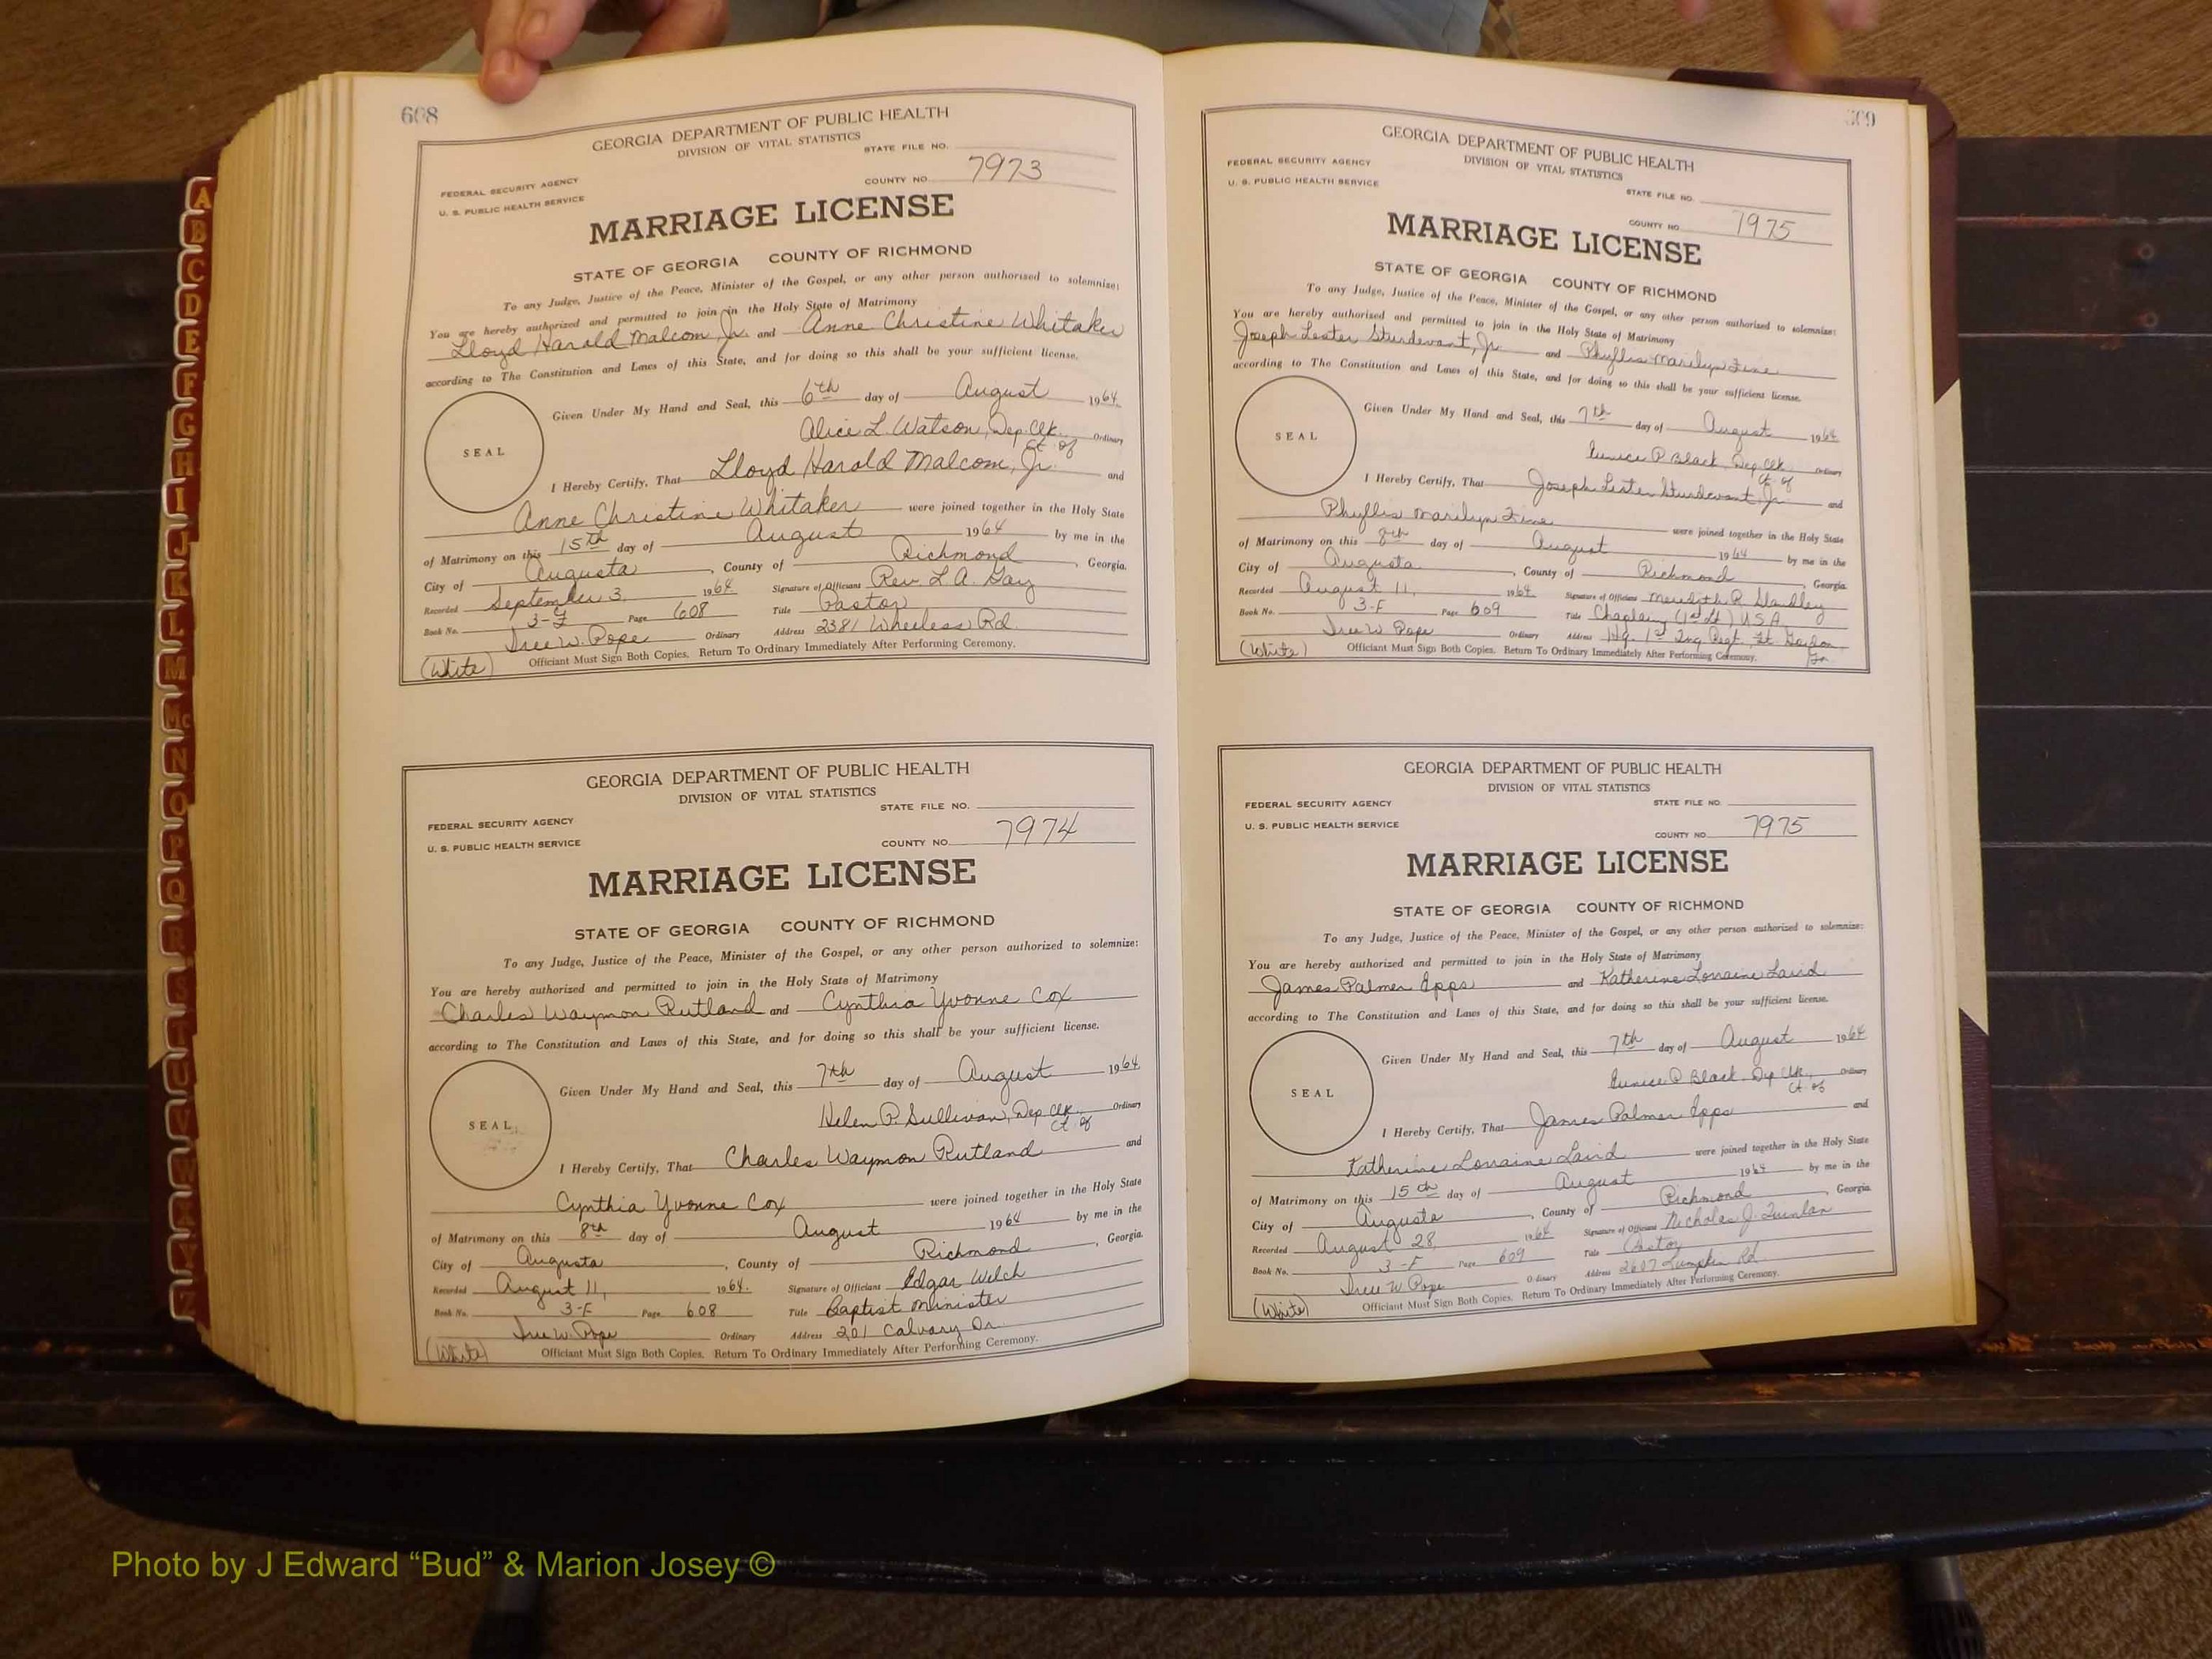 608
GEORGIA DEPARTMENT OF PUBLIC HEALTH
DIVISION OF VITAL STATISTICS
STATE FILE NO.
FEDERAL SECURITY AGENCY
COUNTY NO. 7973
U. S. PUBLIC HEALTH SERVICE
MARRIAGE LICENSE
STATE OF GEORGIA COUNTY OF RICHMOND
To any Judge, Justice of the Peace, Minister of the Gospel, or any other person authorized to solemnize:
You are hereby authorized and permitted to join in the Holy State of Matrimony
Lloyd Harold Malcom, Jr. and Anne Christine Whitaker
according to The Constitution and Laws of this State, and for doing so this shall be your sufficient license.
Given Under My Hand and Seal, this 6th day of August 1964.
SEAL
Alice L. Watson, Dep. Clk. Ordinary
Ct. of
I Hereby Certify, That Lloyd Harold Malcom, Jr. and
Anne Christine Whitaker were joined together in the Holy State
of Matrimony on this 15th day of August 1964 by me in the
City of Augusta, County of Richmond, Georgia.
Recorded September 3, 1964. Signature of Officiant Rev. L. A. Gay
Book No. 3-F Page 608 Title Pastor
W. Pope Ordinary Address 2381 Wheeless Rd.
(White) Officiant Must Sign Both Copies. Return To Ordinary Immediately After Performing Ceremony.
GEORGIA DEPARTMENT OF PUBLIC HEALTH
DIVISION OF VITAL STATISTICS
STATE FILE NO.
FEDERAL SECURITY AGENCY
COUNTY NO. 7974
U. S. PUBLIC HEALTH SERVICE
MARRIAGE LICENSE
STATE OF GEORGIA COUNTY OF RICHMOND
To any Judge, Justice of the Peace, Minister of the Gospel, or any other person authorized to solemnize:
You are hereby authorized and permitted to join in the Holy State of Matrimony
Charles Waymon Rutland and Cynthia Yvonne Cox
according to The Constitution and Laws of this State, and for doing so this shall be your sufficient license.
Given Under My Hand and Seal, this 7th day of August 1964.
SEAL
Helen P. Sullivan, Dep. Clk. Ordinary
Ct. of
I Hereby Certify, That Charles Waymon Rutland and
Cynthia Yvonne Cox were joined together in the Holy State
of Matrimony on this 8th day of August 1964 by me in the
City of Augusta, County of Richmond, Georgia.
Recorded August 11, 1964. Signature of Officiant Edgar Welch
Book No. 3-F Page 608 Title Baptist Minister
W. Pope Ordinary Address 201 Calvary Dr.
(White) Officiant Must Sign Both Copies. Return To Ordinary Immediately After Performing Ceremony.
609
GEORGIA DEPARTMENT OF PUBLIC HEALTH
DIVISION OF VITAL STATISTICS
FEDERAL SECURITY AGENCY
STATE FILE NO.
U. S. PUBLIC HEALTH SERVICE
COUNTY NO. 7975
MARRIAGE LICENSE
STATE OF GEORGIA COUNTY OF RICHMOND
To any Judge, Justice of the Peace, Minister of the Gospel, or any other person authorized to solemnize:
You are hereby authorized and permitted to join in the Holy State of Matrimony
Joseph Lester Sturdevant, Jr. and Phyllis Marilyn Fine
according to The Constitution and Laws of this State, and for doing so this shall be your sufficient license.
Given Under My Hand and Seal, this 7th day of August 1964
SEAL
Eunice P. Black, Dep. Clk. Ordinary
Ct. of
I Hereby Certify, That Joseph Lester Sturdevant, Jr. and
Phyllis Marilyn Fine were joined together in the Holy State
of Matrimony on this 8th day of August 1964 by me in the
City of Augusta, County of Richmond, Georgia.
Recorded August 11, 1964. Signature of Officiant Meredith R. Standley
Book No. 3-F Page 609 Title Chaplain (1st Lt) U.S.A.
W. Pope Ordinary Address Hq. 1st Regt. Ft. Gordon,
Ga.
(White) Officiant Must Sign Both Copies. Return To Ordinary Immediately After Performing Ceremony.
GEORGIA DEPARTMENT OF PUBLIC HEALTH
DIVISION OF VITAL STATISTICS
FEDERAL SECURITY AGENCY
STATE FILE NO.
U. S. PUBLIC HEALTH SERVICE
COUNTY NO. 7975
MARRIAGE LICENSE
STATE OF GEORGIA COUNTY OF RICHMOND
To any Judge, Justice of the Peace, Minister of the Gospel, or any other person authorized to solemnize:
You are hereby authorized and permitted to join in the Holy State of Matrimony
James Palmer Epps and Katherine Lorraine Laird
according to The Constitution and Laws of this State, and for doing so this shall be your sufficient license.
Given Under My Hand and Seal, this 7th day of August 1964
SEAL
Eunice P. Black, Dep. Clk. Ordinary
Ct. of
I Hereby Certify, That James Palmer Epps and
Katherine Lorraine Laird were joined together in the Holy State
of Matrimony on this 15th day of August 1964 by me in the
City of Augusta, County of Richmond, Georgia.
Recorded August 28, 1964. Signature of Officiant Nicholas J. Quinlan
Book No. 3-F Page 609 Title Pastor
W. Pope Ordinary Address 2607 Lumpkin Rd.
(White) Officiant Must Sign Both Copies. Return To Ordinary Immediately After Performing Ceremony.
A
B
C
D
E
F
G
H
I
J
K
L
M
Mc
N
O
P
Q
R
S
T
U
V
W
Photo by J Edward “Bud” & Marion Josey ©